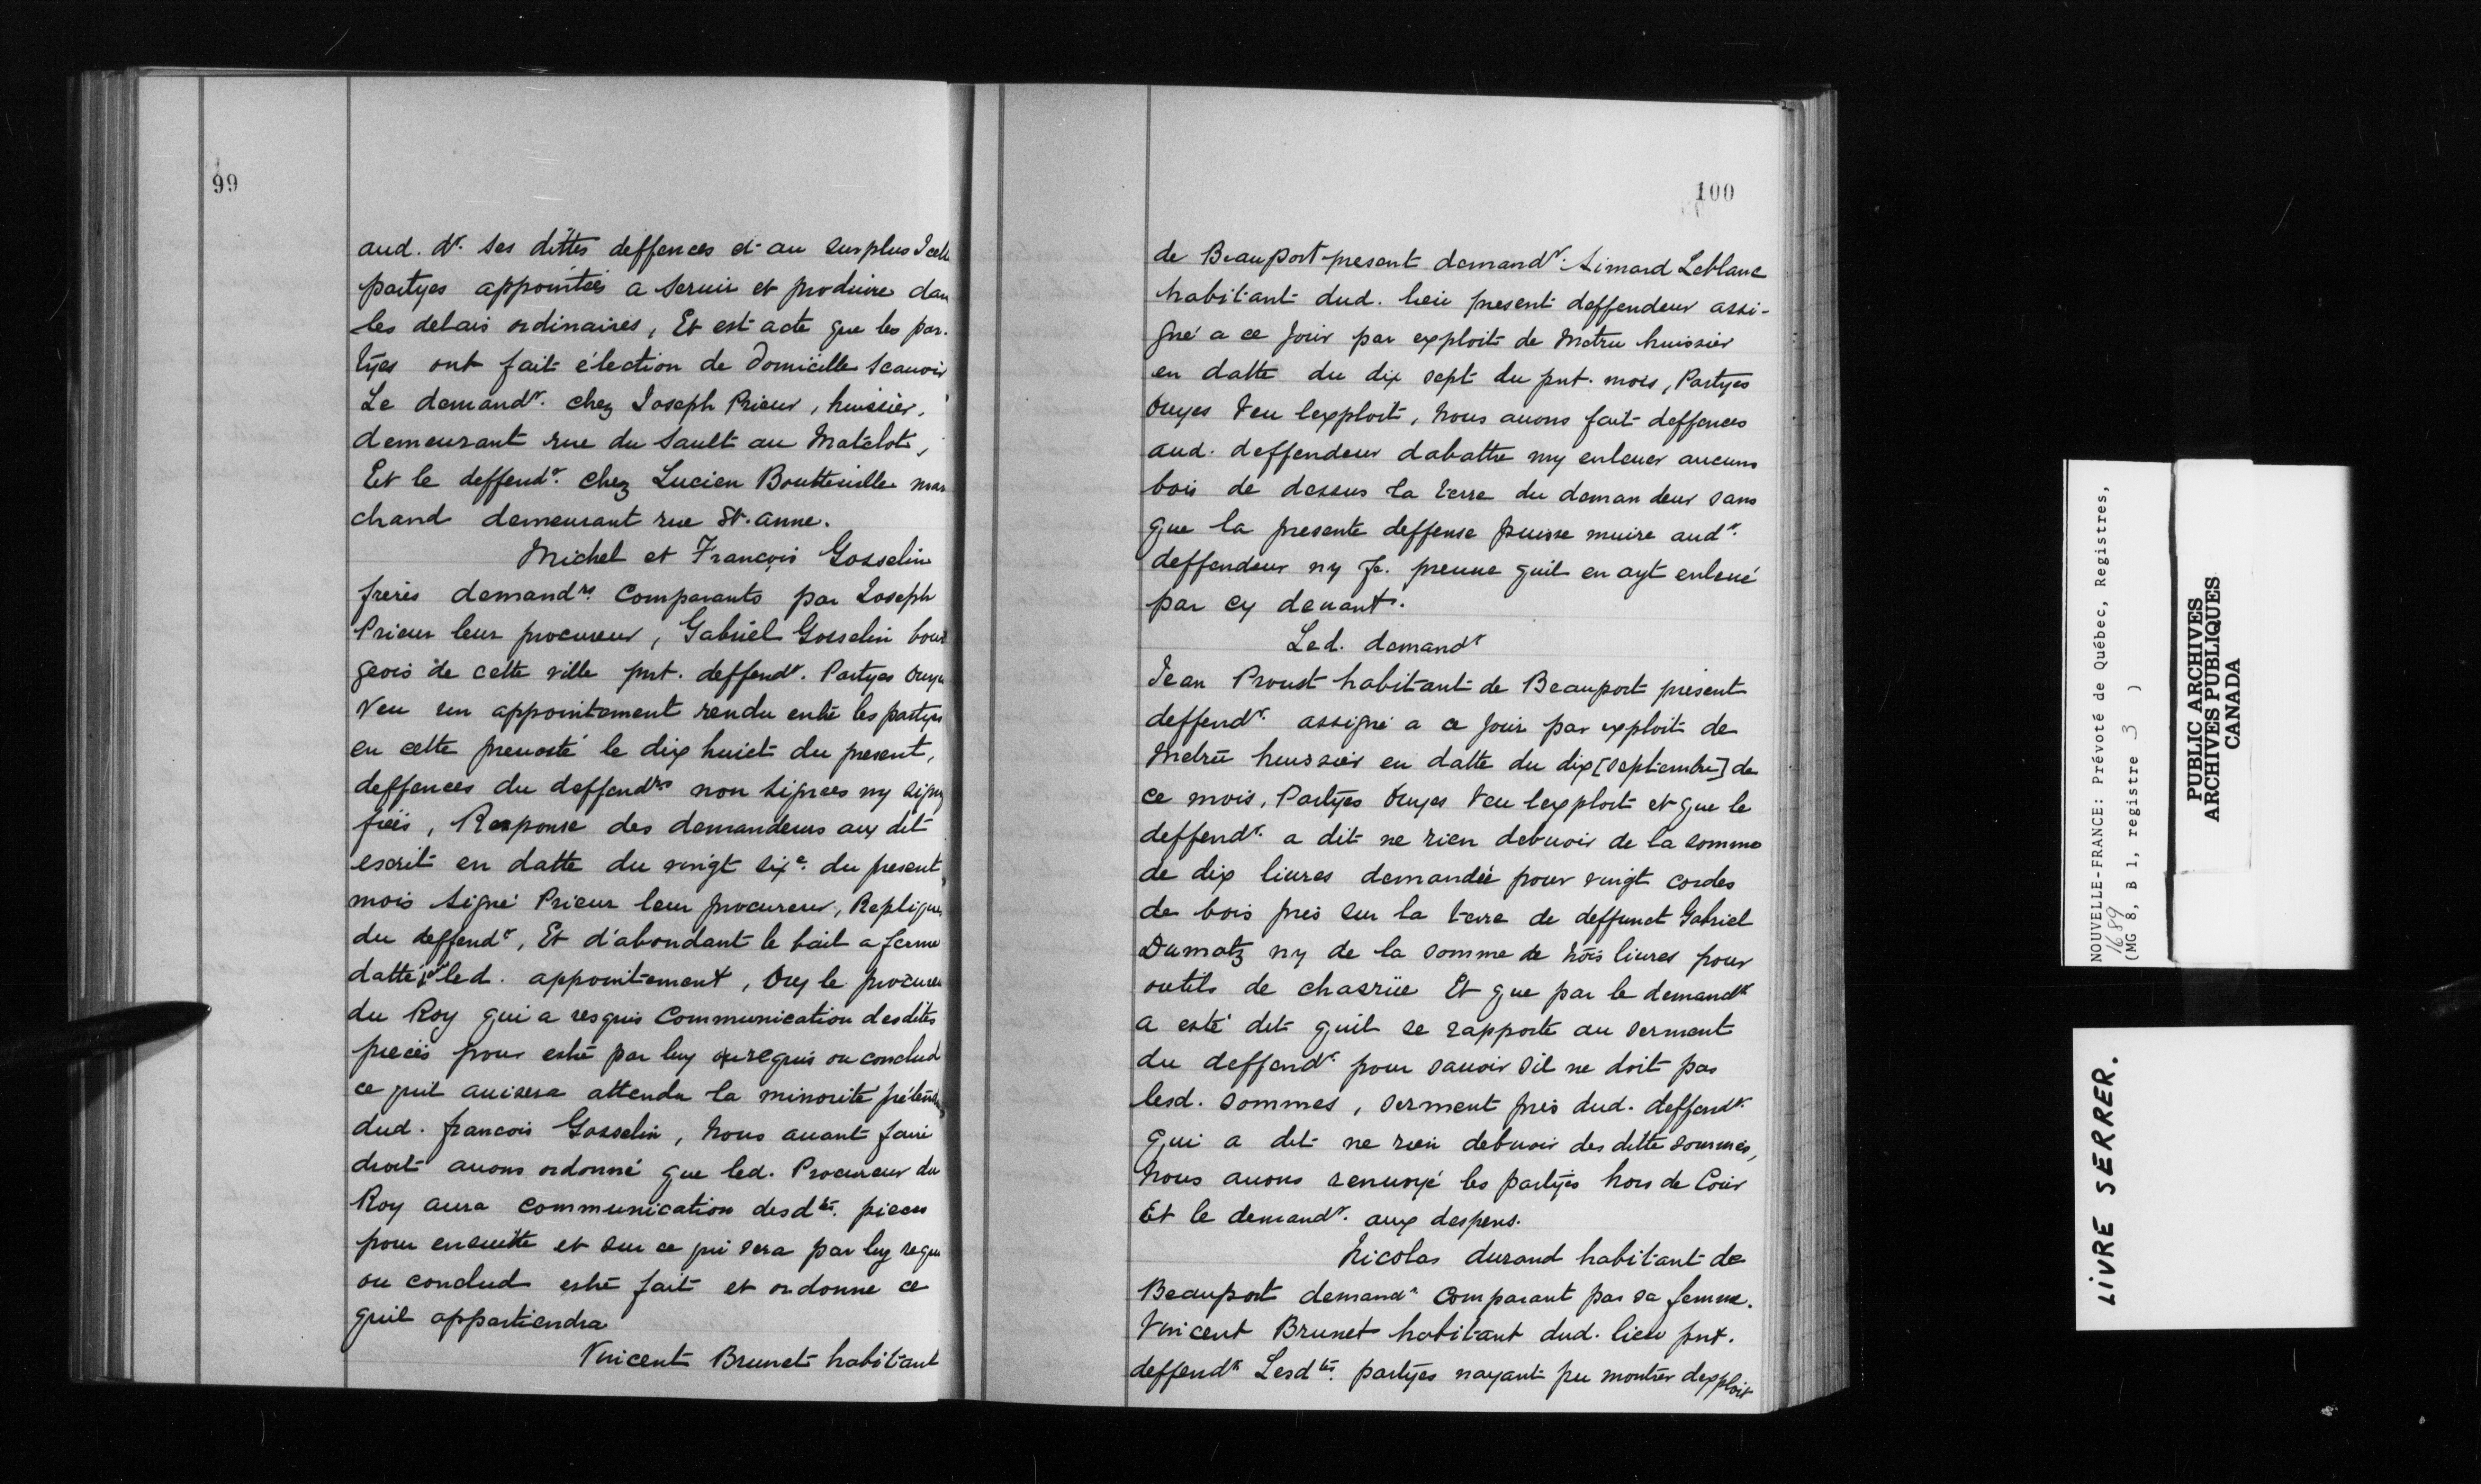 99
aud. dr. ses dittes deffences et au surplus Icell
partyes appointées a seruir et produire dan
les delais ordinaires, Et est acte que les par.
tyes ont fait élection de domicille scauoir
Le demandr. chez Joseph Prieur, huissier,
demeurant rue du Sault au Matelot,
Et le deffendr. chez Lucien Boutteuille mar
chand demeurant rue St. anne.
Michel et François Gosselin
freres demandrs. Comparants par Joseph
Prieur leur procureur, Gabriel Gosselin bour
geois de cette ville pnt. deffendr. Partyes Ouye
Veu un appointement rendu entre les partyes
en cette preuosté le dix huict du present,
deffences du deffendrs non signees ny signy
fiées, Response des demandeurs aux dit
escrit en datte du vingt sixe. du present
mois signé Prieur leur procureur, Replique
du deffendr, Et d'abondant le bail a ferme
datté led. appointement, Ouy le procureu
du Roy qui a resquis Communication desdites
pieces pour estre par luy ou requis ou conclud
ce quil auisera attendu la minorité prétendu
dud. francois Gosselin, Nous auant faire
droit auons ordonné que led. Procureur du
Roy aura communication desdtes. pieces
pour ensuitte et sur ce qui sera par luy requ
ou conclud estre fait et ordonne ce
quil appartiendra
Vincent Brunet habitant
100
de Beauport present demandr. Simard Leblanc
habitant dud. lieu present deffendeur assi-
gné a ce jour par exploit de Metru huissier
en datte du dix sept du pnt. mois, Partyes
Ouyes Veu lexploit, Nous auons fait deffences
aud. deffendeur dabattre ny enleuer aucuns
bois de dessus la terre du deman deur sans
que la presente deffense puisse nuire audr.
deffendeur ny Je. preuue quil en ayt enleué
par cy deuant.
Led. demandr
Jean Proust habitant de Beauport present
deffendr. assigné a ce jour par exploit de
Metru huissier en datte du dix [septembre] de
ce mois, Partyes Ouyes Veu lexploit et que le
deffendr. a dit ne rien debuoir de la somme
de dix liures demandée pour vingt cordes
de bois pris sur la terre de deffunct Gabriel
Dumatz ny de la somme de trois liures pour
outils de charrüe Et que par le demandr
a esté dit quil se rapporte au serment
du deffendr. pour sauoir sil ne doit pas
lesd. sommes, serment pris dud. deffendr.
Qui a dit ne rien debuoir des ditte sommes,
Nous auons renuoyé les partyes hors de Cour
Et le demandr. aux despens.
Nicolas durand habitant de
Beauport demandr Comparant par sa femme.
Vincent Brunet habitant dud. lieu pnt.
deffendr Lesdtes. partyes nayant pu montrer dexploit
NOUVELLE-FRANCE: Prévoté de Québec, Registres,
1689
(MG 8, B 1, registre 3 )
PUBLIC ARCHIVES
ARCHIVES PUBLIQUES
CANADA
LIVRE SERRER.